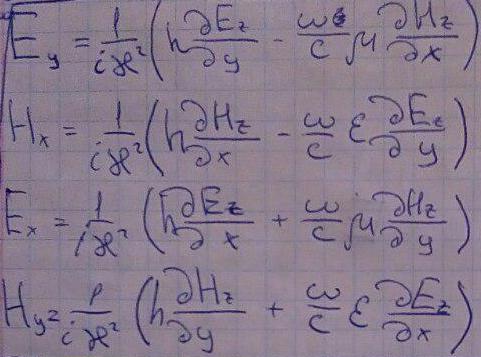 E_y = 1/(iϰ²) (h ∂E_z/∂y − ω/c μ ∂H_z/∂x)
H_x = 1/(iϰ²) (h ∂H_z/∂x − ω/c ε ∂E_z/∂y)
E_x = 1/(iϰ²) (h ∂E_z/∂x + ω/c μ ∂H_z/∂y)
H_y = 1/(iϰ²) (h ∂H_z/∂y + ω/c ε ∂E_z/∂x)